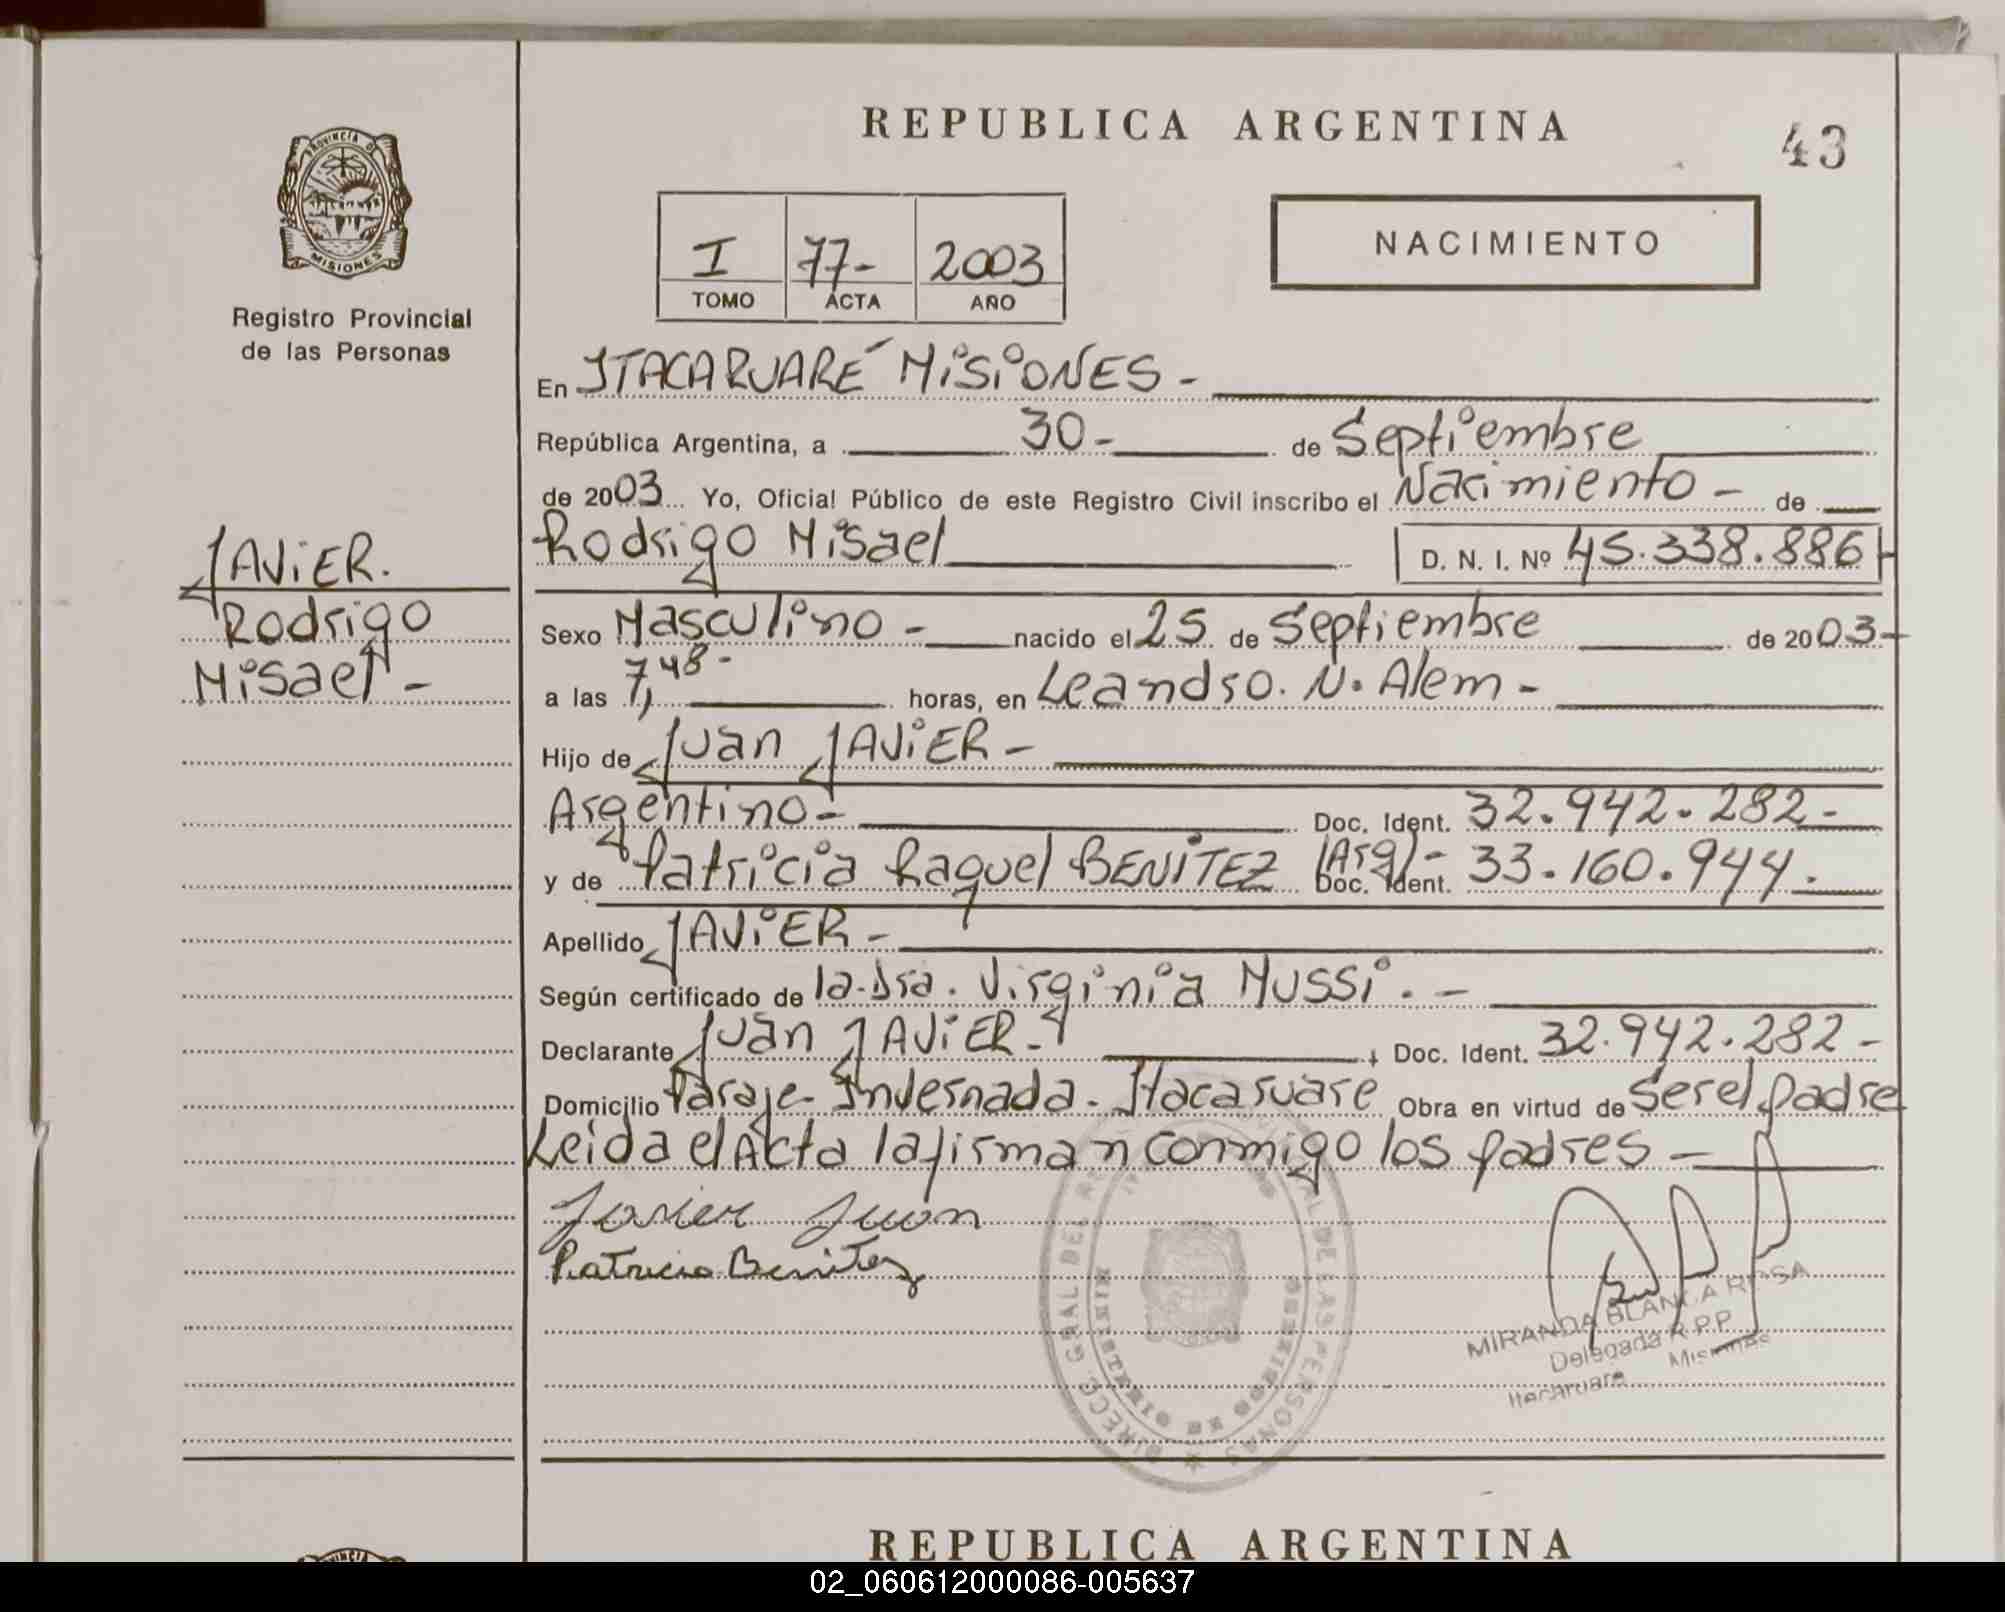 REPUBLICA ARGENTINA
43
PROVINCIA D
MISIONES
Registro Provincial
de las Personas
I 77- 2003
TOMO ACTA AÑO
NACIMIENTO
En ITACARUARÉ MISIONES -
República Argentina, a 30- de Septiembre
de 2003 Yo, Oficial Público de este Registro Civil inscribo el Nacimiento - de
Rodrigo Misael D. N. I. Nº 45.338.886
JAVIER.
Rodrigo
Misael -
Sexo Masculino - nacido el 25 de Septiembre de 2003-
a las 7,48- horas, en Leandro. N. Alem -
Hijo de Juan JAVIER -
Argentino - Doc. Ident. 32.942.282-
y de Patricia Raquel BENITEZ (Arg)- Doc. Ident. 33.160.944.
Apellido JAVIER -
Según certificado de la Dra. Virginia MUSSI. -
Declarante Juan JAVIER - Doc. Ident. 32.942.282-
Domicilio Paraje Invernada - Itacaruare Obra en virtud de Ser el padre
Leida el Acta la firman conmigo los padres -
Javier Juan
Patricia Benitez
DIRECC. GRAL DEL REGISTRO PROVINCIAL DE LAS PERSONAS
MINISTERIO DE GOBIERNO
MIRANDA BLANCA ROSA
Delegada R.P.P
Itacaruare Misiones
REPUBLICA ARGENTINA
02_060612000086-005637